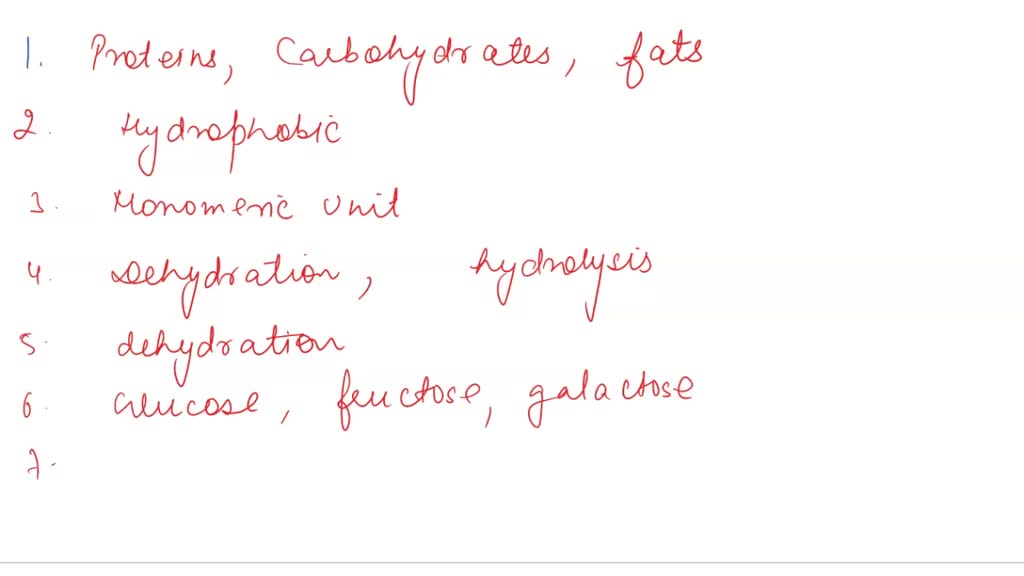 1. Proteins, Carbohydrates, fats
2. Hydrophobic
3. Monomeric unit
4. Dehydration, hydrolysis
5. dehydration
6. Glucose, fructose, galactose
7.